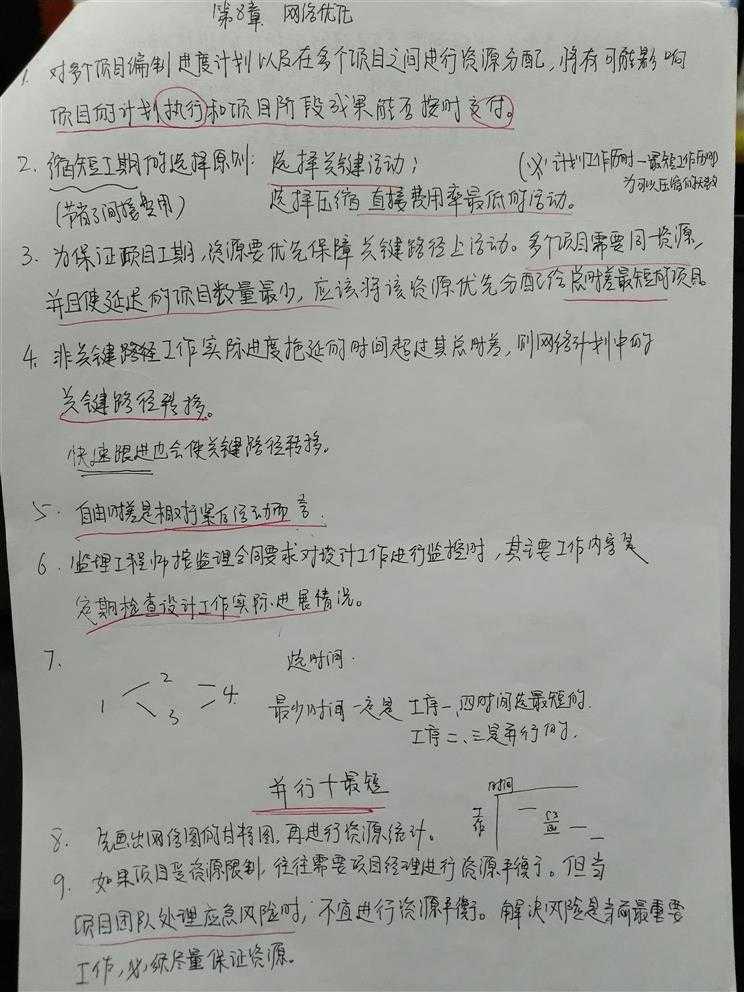 第8章 网络优化
1. 对多个项目编制进度计划以及在多个项目之间进行资源分配，将有可能影响
项目的计划执行和项目阶段成果能否按时交付。
2. 缩短工期的选择原则：选择关键活动； (※：计划工作历时－最短工作历时
为可以压缩的天数
(节省了间接费用) 选择压缩直接费用率最低的活动。
3. 为保证项目工期，资源要优先保障关键路径上活动。多个项目需要同一资源，
并且使延迟的项目数量最少，应该将该资源优先分配给总时差最短的项目。
4. 非关键路径工作实际进度拖延的时间超过其总时差，则网络计划中的
关键路径转移。
快速跟进也会使关键路径转移。
5. 自由时差是相对于紧后活动而言.
6. 监理工程师按监理合同要求对设计工作进行监控时，其主要工作内容是
定期检查设计工作实际进展情况。
7. 选时间.
1 2 3 4
最少时间一定是 工序一、四时间选最短的.
工序二、三是并行的.
并行+最短
时间
工作
8. 先画出网络图的甘特图，再进行资源统计。
9. 如果项目受资源限制，往往需要项目经理进行资源平衡。但当
项目团队处理应急风险时，不宜进行资源平衡。解决风险是当前最重要
工作，必须尽量保证资源。